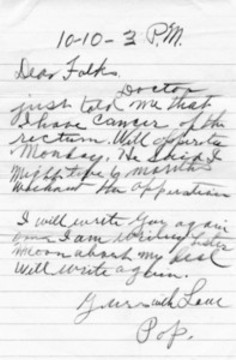 10-10-3 P.M.
Dear Folks.
Doctor
just told me that
I have cancer of the
rectum. Will operate
Monday. He said I
might live 6 months
without the opperation
I will write you again
I am writing sister
about my
Will write again.
Yours with Love
Pop.